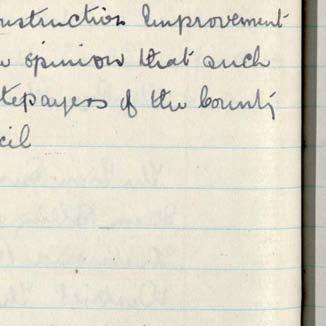 nstruction Improvement
opinion that such
tepayers of the County
cil